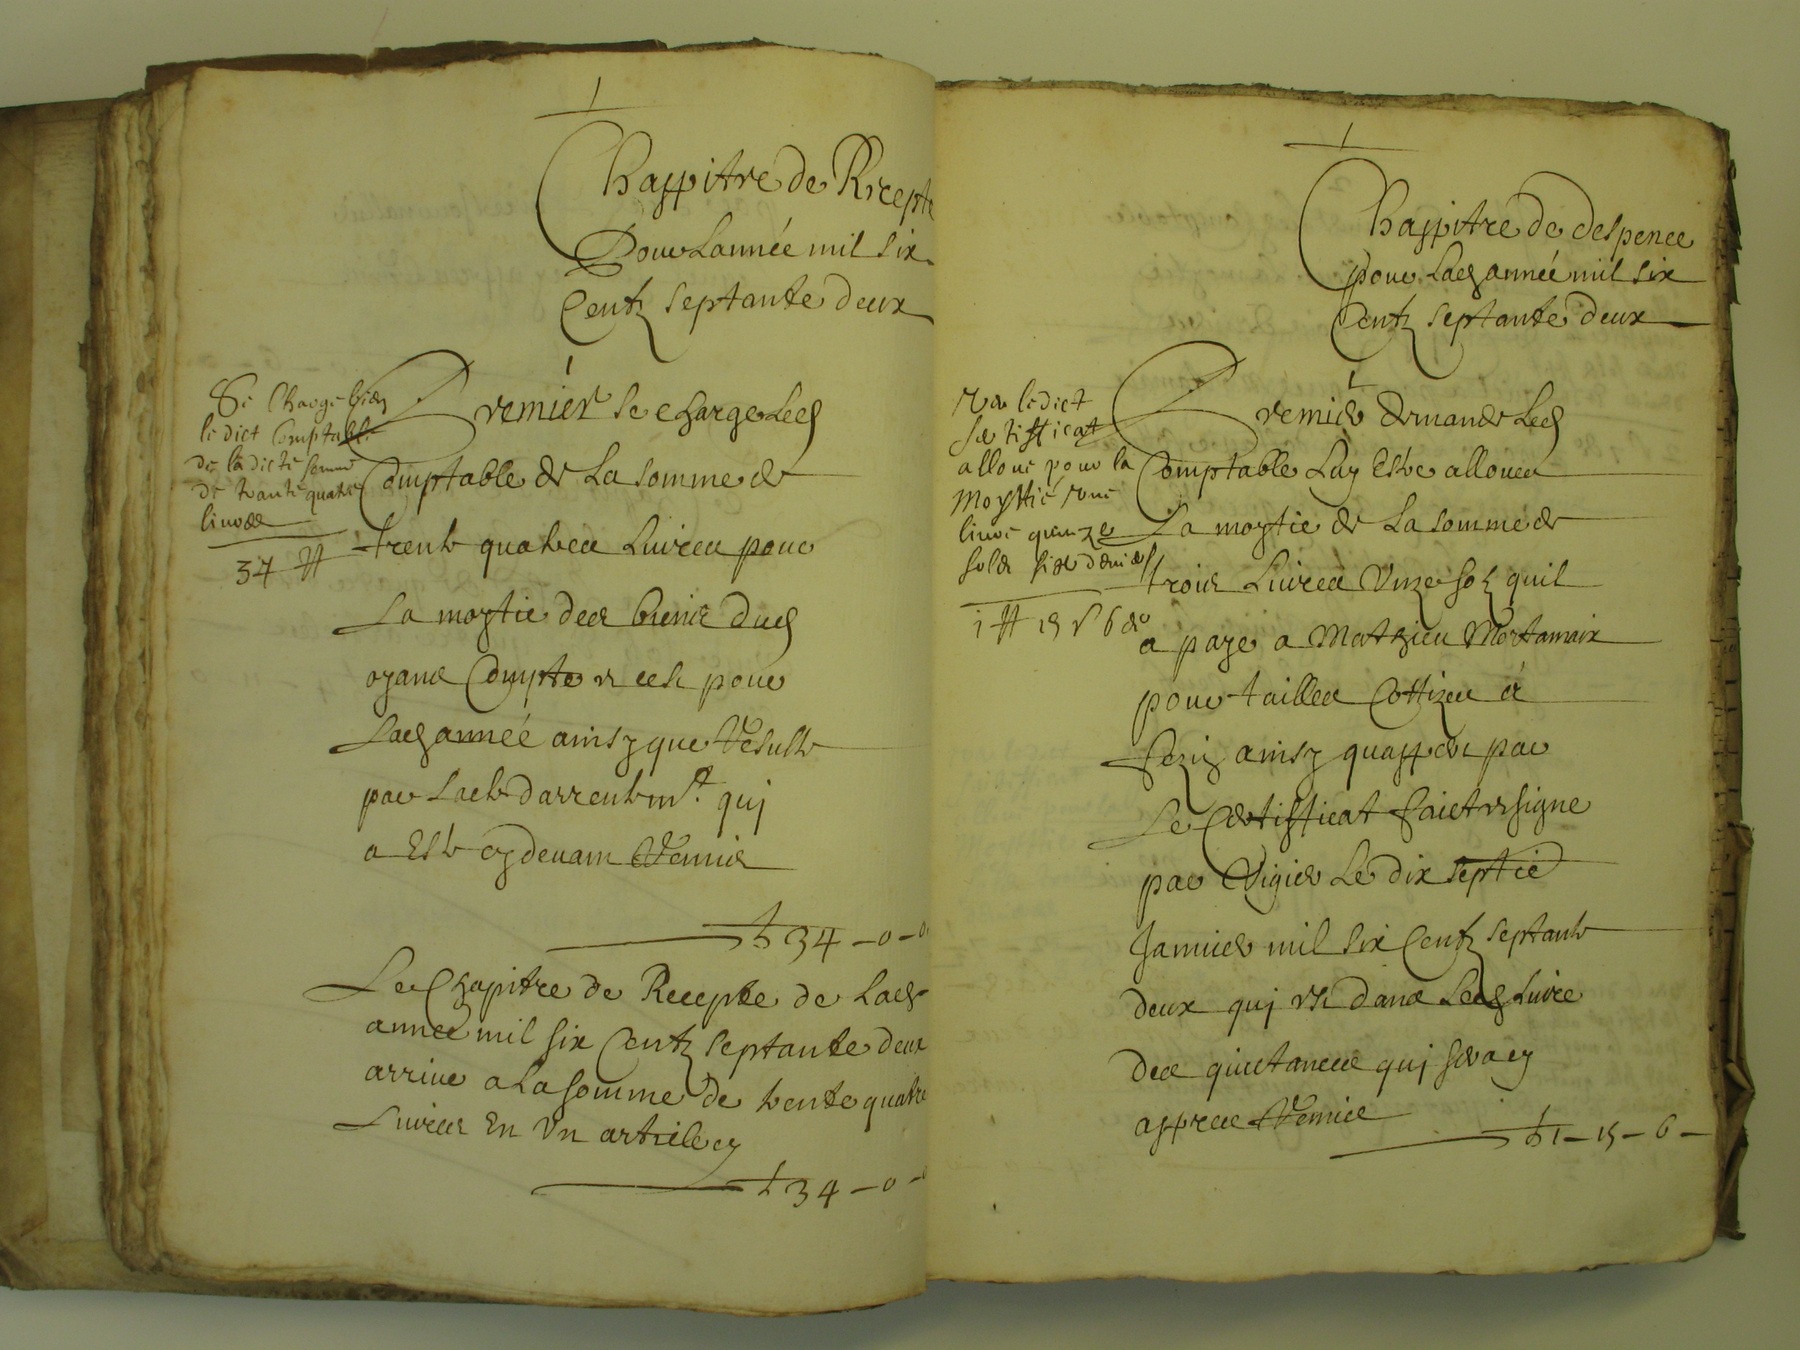 Chappitre de Recepte
Pour Lannée mil six
Centz septante deux
Se charge bien
le dict comptable
de la dicte somme
de trante quatre
livres
34 ℔
1
Premier se charge Led
Comptable de La somme de
trente quatre Livres pour
La moytie des biens dud
oyant Compte et cest pour
Lad année ainsy que Resulte
par Lacte darrentemt. quj
a Este cydevant Remis
34 - 0 - 0
Le Chapitre de Recepte de Lad
annee mil six Centz septante deux
arrive a La somme de trente quatre
Livres En Un article cy
34 - 0 -
Chappitre de despence
pour Lad année mil six
Centz septante deux
Veu le dict
sertifficat
alloué pour la
moyttié une
livre quinze
solz six deniers
1 ℔ 15 s 6 d
1
Premier demande Led
Comptable Luy Estre alloues
La moytie de La somme de
trois Livres Unze solz quil
a paye a Mathieu Mertamaix
pour tailles Cottizes a
ainsy quappert par
Le Certifficat faict et signe
par Vigier Le dix septie
Janvier mil six Centz septante
deux quj est dans Led Livre
des quictances quj sera cy
appres Remise
1 - 15 - 6 -